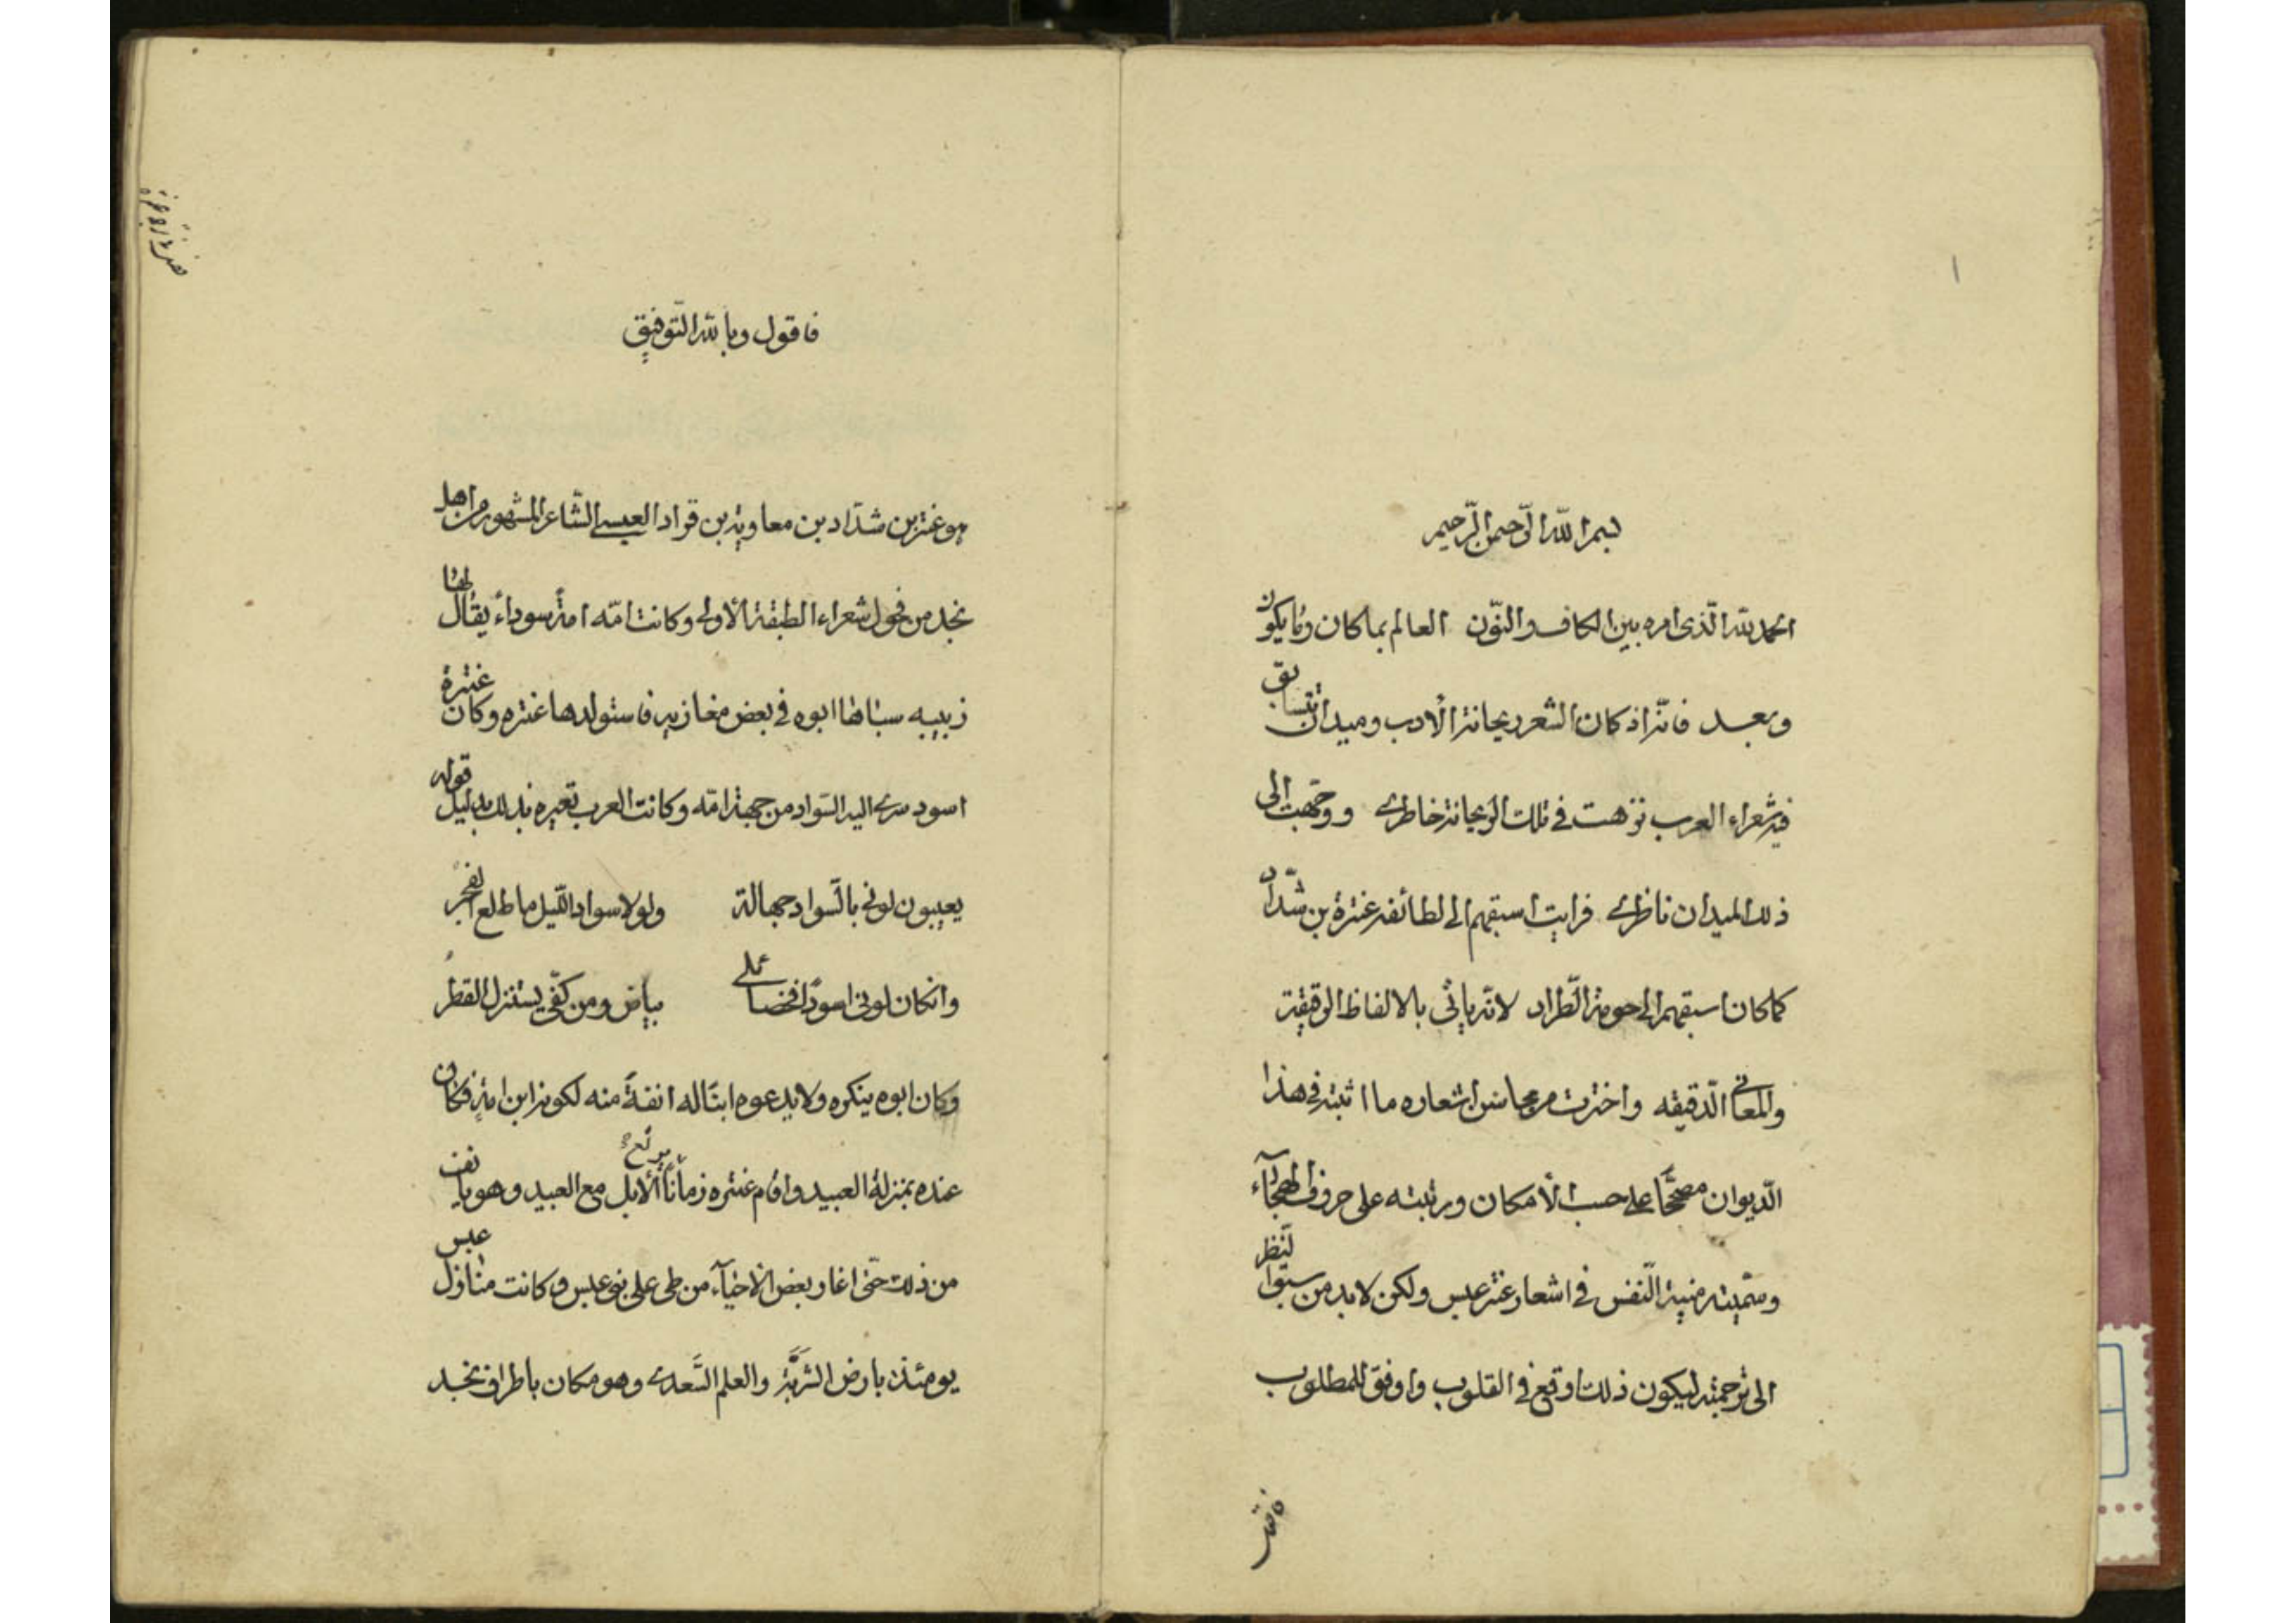 ١
بسم الله الرّحمن الرّحيم
الحمد لله الّذى امره بين الكاف والنّون العالم بما كان وما يكون
وبعد فانّه اذ كان الشعر ريحانة الأدب وميدان تتسابق
فيه شعراء العرب نزهت في تلك الريحانة خاطرى ووجّهت الى
ذلك الميدان ناظرى فرايت اسبقهم الى لطائفه عنترة بن شدّاد
كما كان اسبقهم الى حومة الطّراد لانّه ياتى بالالفاظ الرقيقة
والمعانى الدّقيقه واخترت من محاسن اشعاره ما اثبته في هذا
الدّيوان مصحّحًا على حسب الأمكان ورتبته على حروف الهجآء
وسمّيته منية النّفس في اشعار عنتر عبس ولكن لابد من سبق النّظر
الى ترجمته ليكون ذلك اوقع في القلوب واوفق للمطلوب
فاقول وبالله التّوفيق
هو عنتر بن شدّاد بن معاوية بن قراد العبسى الشّاعر المشهور من اهل
نجد من فحول شعراء الطبقة الأولى وكانت امّه امةً سوداء يقال لها
زبيبه سباها ابوه في بعض مغازيه فاستولدها عنتره وكان عنترة
اسود سرى اليه السّواد من جهة امّه وكانت العرب تعيره بذلك بدليل قوله
يعيبون لونى بالسّواد جهالة ولولا سواد اللّيل ما طلع الفجر
وانكان لونى اسودًا فخصائلى بياض ومن كفّى يستنزل القطر
وكان ابوه ينكره ولا يدعوه ابنًا له انفةً منه لكونه ابن امةٍ فكان
عنده بمنزلة العبيد واقام عنتره زمانًا يرعى الأبل مع العبيد وهو يانف
من ذلك حتّى اغار بعض الاحيآء من طى على بنى عبس وكانت منازل عبس
يومئذ بارض الشّربّة والعلم السّعدى وهو مكان باطراف نجد